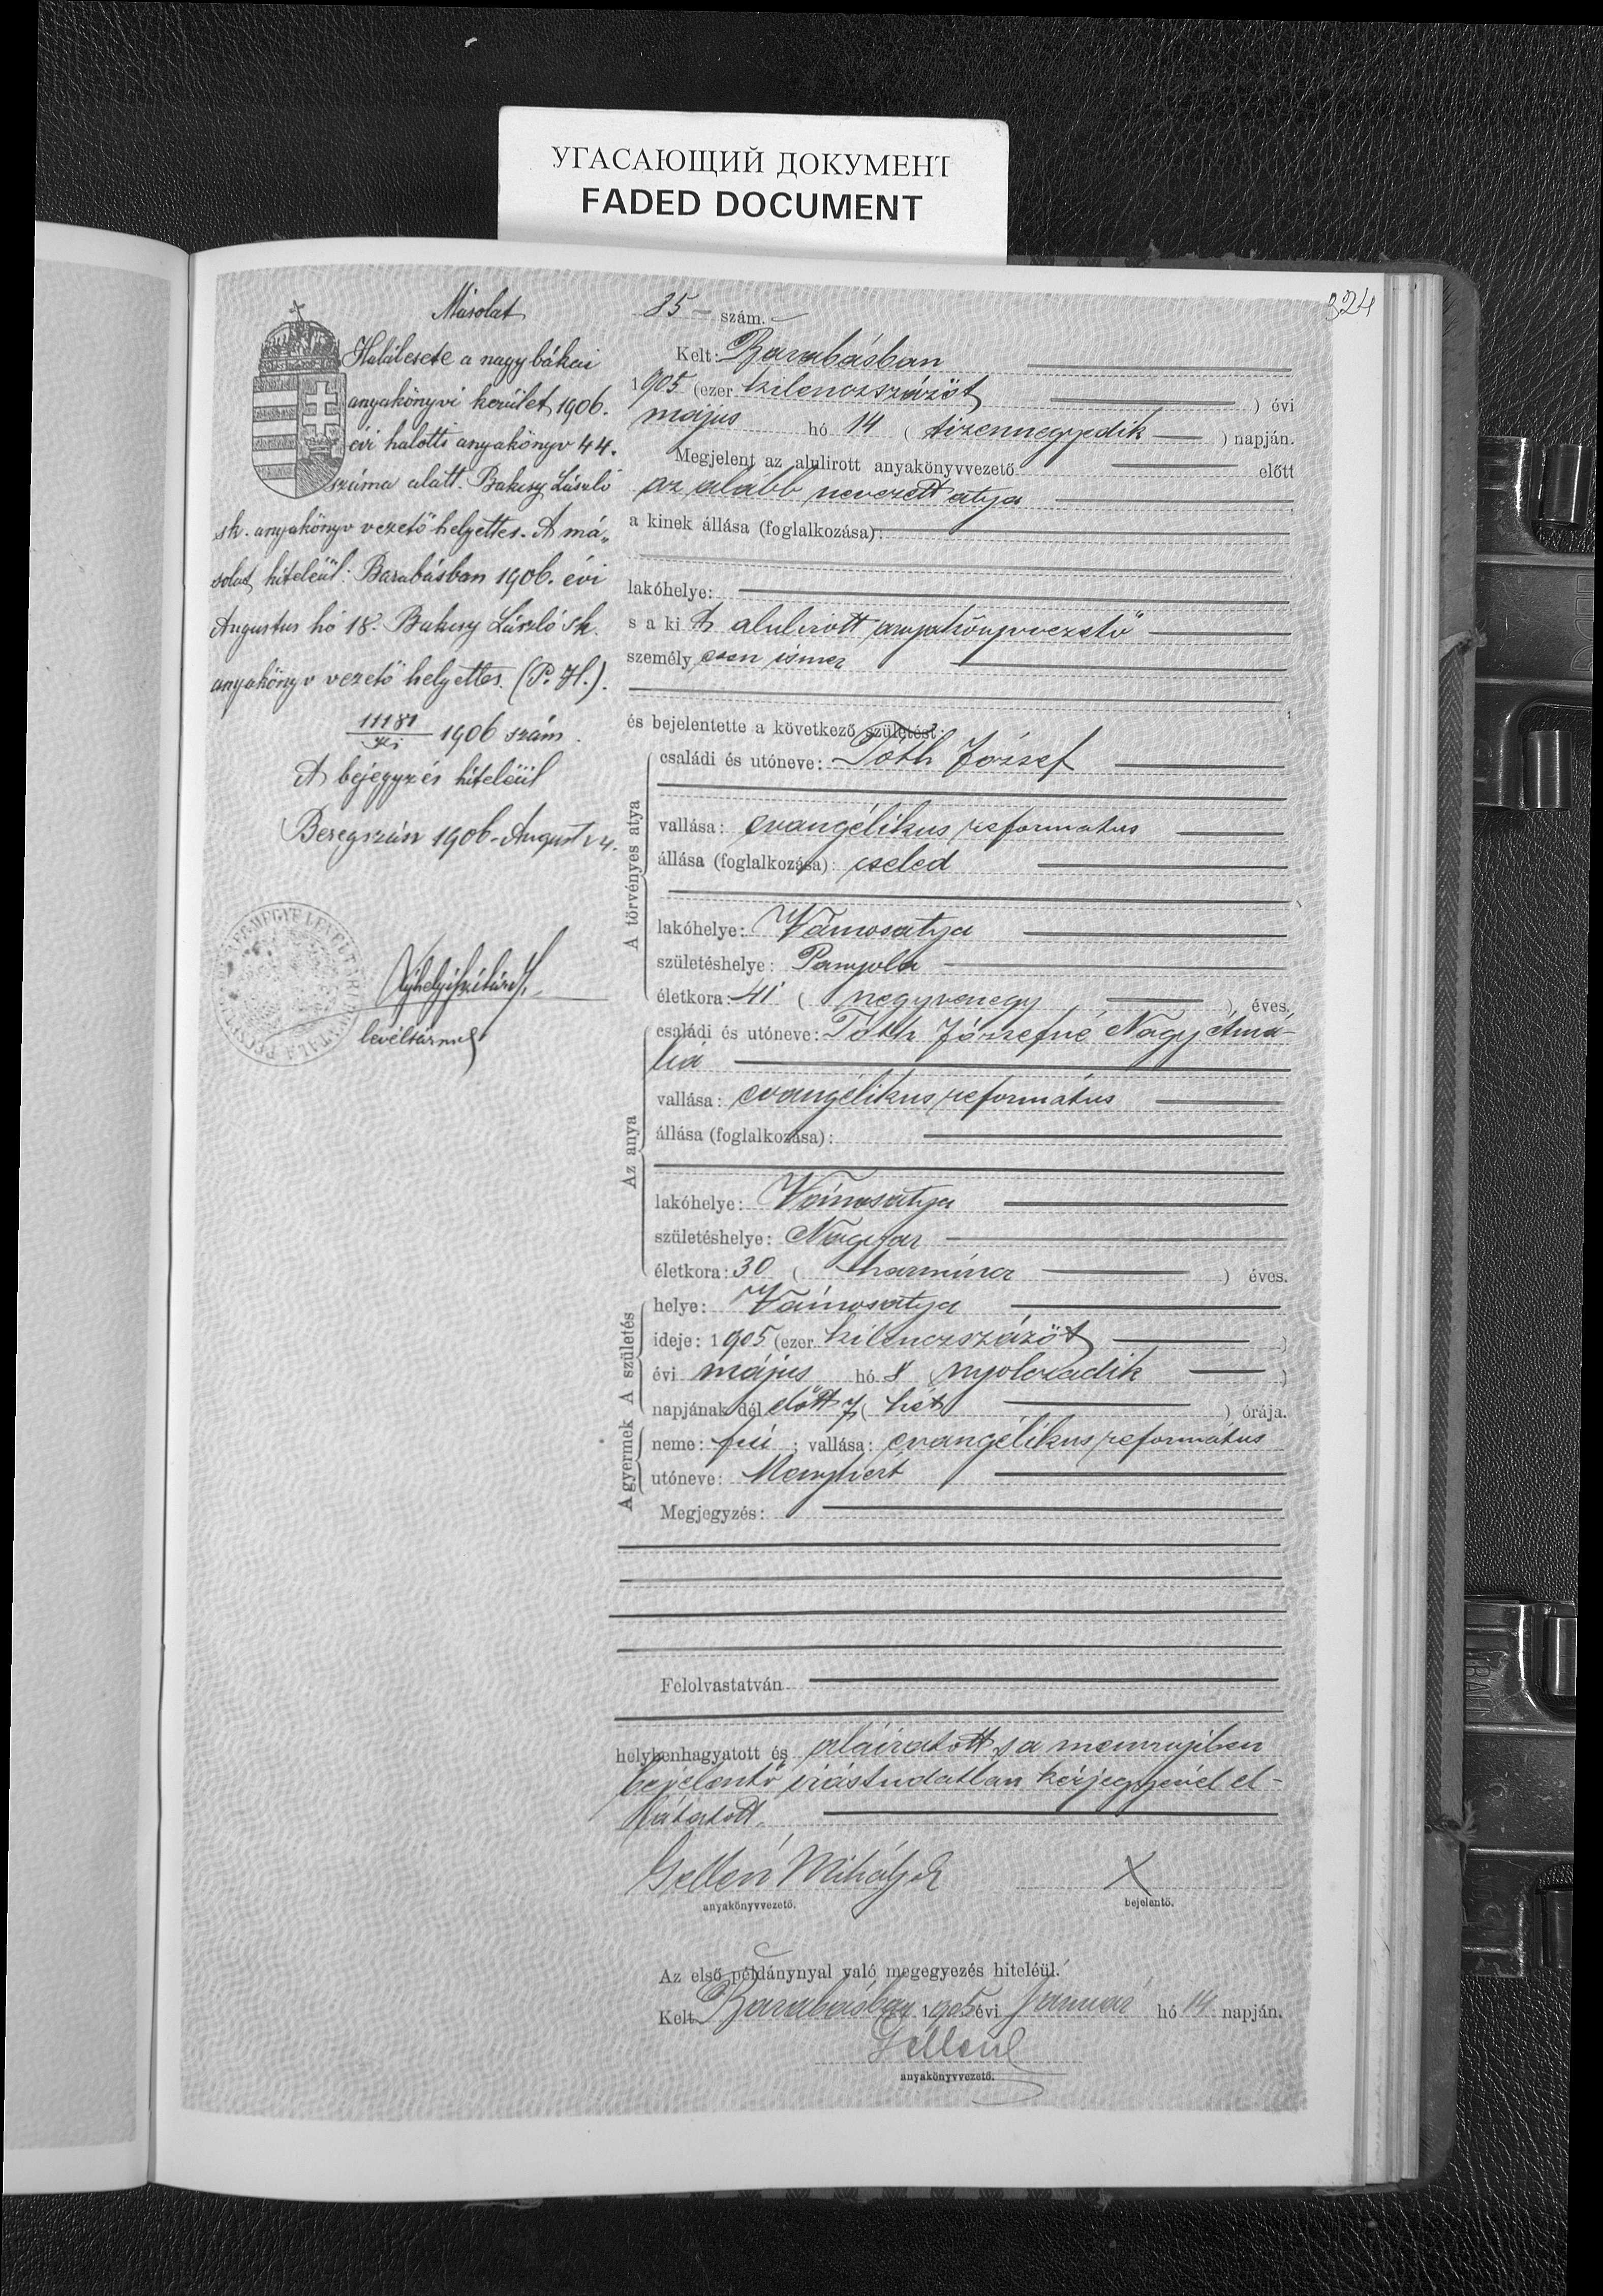 УГАСАЮЩИЙ ДОКУМЕНТ
FADED DOCUMENT
324
Másolat
Halálesete a nagybákai
anyakönyvi kerület 1906.
évi halotti anyakönyv 44.
száma alatt. Bakcsy László
sk. anyakönyv vezető helyettes. A má„
solat hiteléül: Barabásban 1906. évi
Augustus hó 18. Bakcsy László sk.
anyakönyv vezető helyettes. (P. H.).
11181
1906 szám.
A bejegyzés hiteléül
Beregszász 1906. August 24.
levéltárnok
85 — szám.
Kelt: Barabásban
1905 (ezer kilenczszázöt ) évi
május hó 14 ( tizennegyedik ) napján.
Megjelent az alulirott anyakönyvvezető előtt
az alább nevezett atya
a kinek állása (foglalkozása):
lakóhelye:
s a ki t alulirott anyakönyvvezető
személyesen ismer
és bejelentette a következő születést:
A törvényes atya
családi és utóneve: Tóth József
vallása: evangélikus református
állása (foglalkozása): cseléd
lakóhelye: Vámosatya
születéshelye: Panyola
életkora: 41 ( negyvenegy ) éves.
Az anya
családi és utóneve: Tóth Józsefné Nagy Amá-
lia
vallása: evangélikus református
állása (foglalkozása):
lakóhelye: Vámosatya
születéshelye: Nagyvar
életkora: 30 ( harmincz ) éves.
A születés
helye: Vámosatya
ideje: 1905 (ezer kilenczszázöt )
évi május hó 8 ( nyolczadik )
napjának dél előtt 7 ( hét ) órája.
A gyermek
neme: fiú ; vallása: evangélikus református
utóneve: Menyhért
Megjegyzés:
Felolvastatván
helybenhagyatott és aláiratott, s a mennyiben
bejelentő irástudatlan kézjegyével el-
láttatott.
Gellén Mihály
anyakönyvvezető.
X
bejelentő.
Az első példánynyal való megegyezés hiteléül.
Kelt Barabásban 1905 évi Január hó 14 napján.
Gellén
anyakönyvvezető.